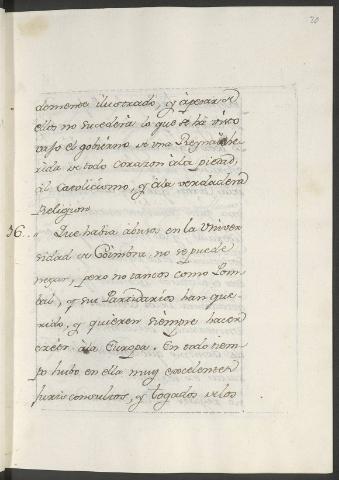 20
damente ilustrado, y apesar de
ello, no sucederia lo que se ha visto
vajo el gobierno de una Reyna
rida de todo corazon à la piedad,
àl Catolicismo, y à la verdadera
Religion.
36.. " Que habia abusos en la Univer
sidad de Coimbra no se puede
negar, pero no tantos como Pom
bal, y sus Partidarios han que
rido, y quieren siempre hacer
creer à la Europa. En todo tiem
po hubo en ella muy excelentes
Jurisconsultos, y togados de los